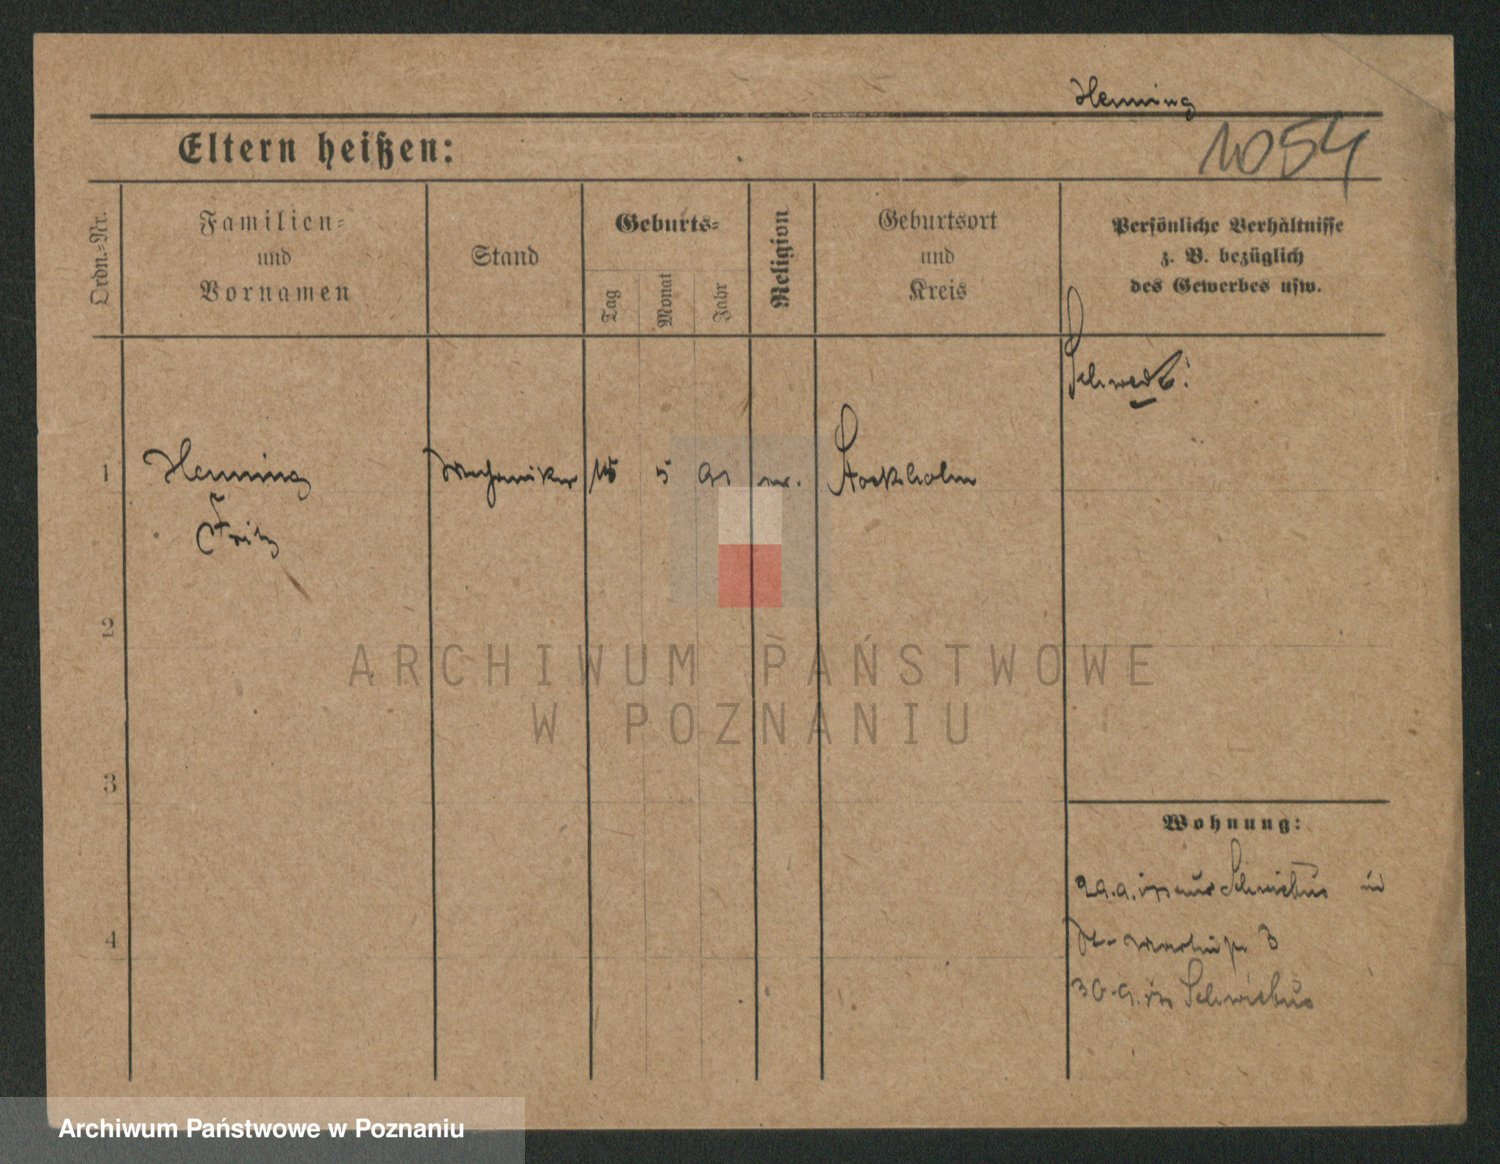 Henning
1054
Eltern heißen:
Ordn.-Nr.
Familien-
und
Vornamen
Stand
Geburts-
Tag
Monat
Jahr
Religion
Geburtsort
und
Kreis
Persönliche Verhältnisse
z. B. bezüglich
des Gewerbes usw.
1
Henning
Fritz
Mechaniker
5
91
Stockholm
2
3
4
Wohnung:
29.9. Schwiebus
3
30.9. Schwiebus
ARCHIWUM PAŃSTWOWE
W POZNANIU
Archiwum Państwowe w Poznaniu